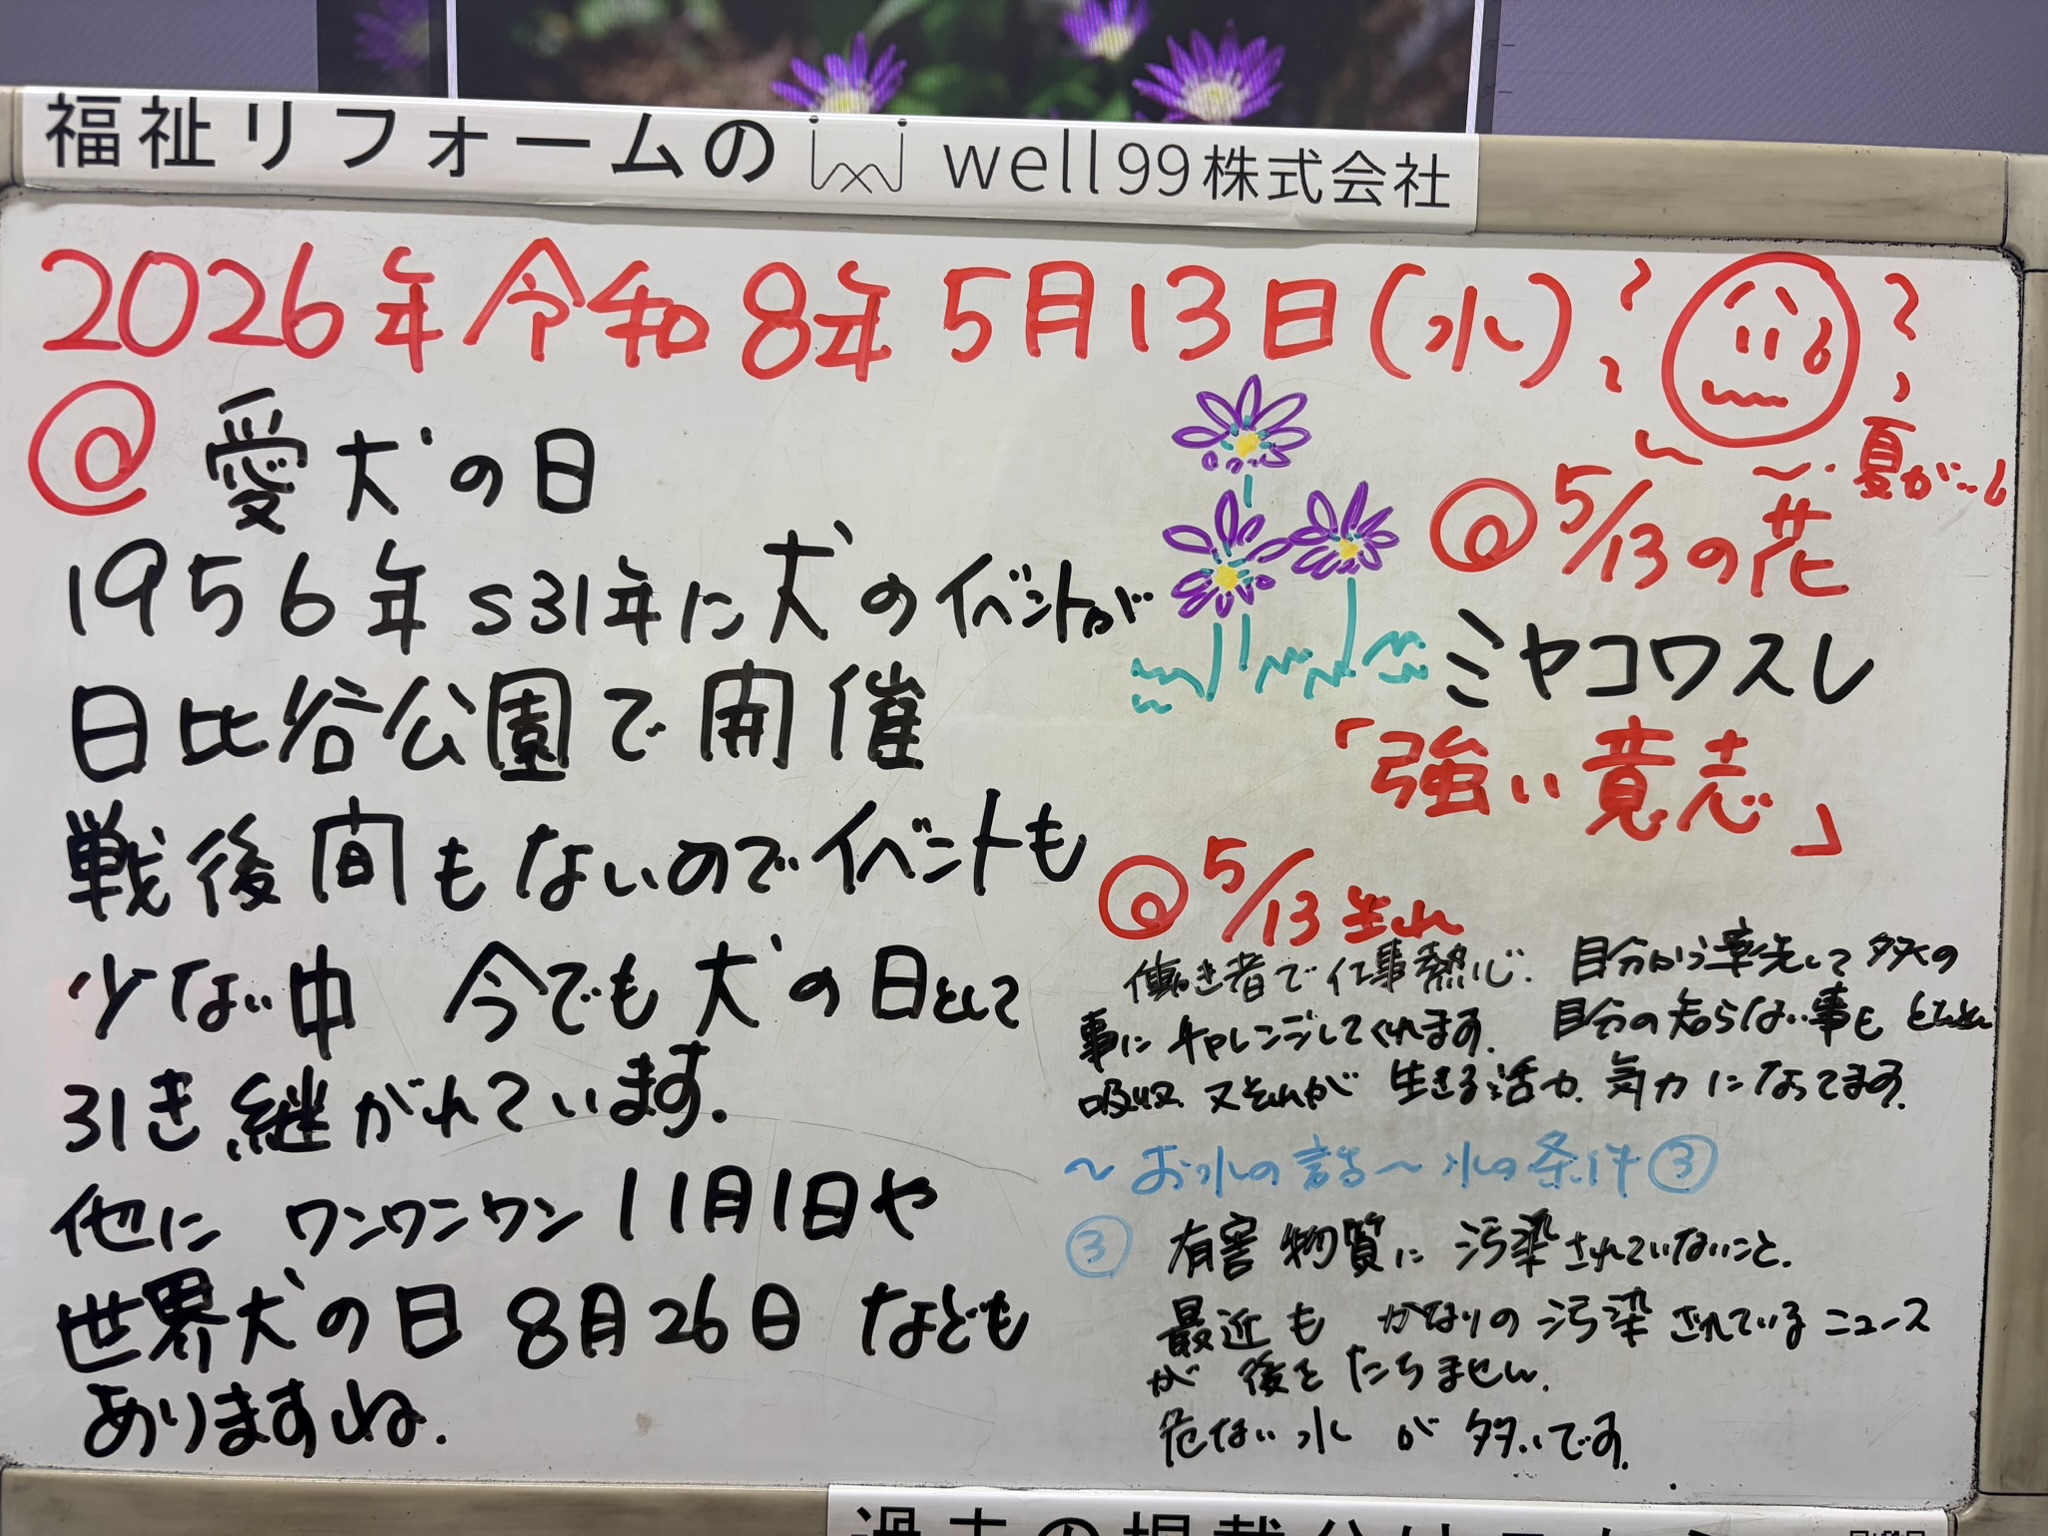 福祉リフォームの well99株式会社
2026年令和8年5月13日(水)
夏が…
@ 愛犬の日
1956年S31年に犬のイベントが
日比谷公園で開催
戦後間もないのでイベントも
少ない中 今でも犬の日として
引き継がれています.
他に ワンワンワン 11月1日や
世界犬の日 8月26日 なども
ありますね.
@ 5/13の花
ミヤコワスレ
「強い意志」
@ 5/13生れ
働き者で仕事熱心. 自分から率先して多くの
事にチャレンジしてくれます. 自分の知らない事もどんどん
吸収 又それが 生きる活力.気力になってます.
~お水の話~水の条件③
③ 有害物質に汚染されていないこと.
最近も かなりの汚染されているニュース
が 後をたちません.
危ない水が多いです.